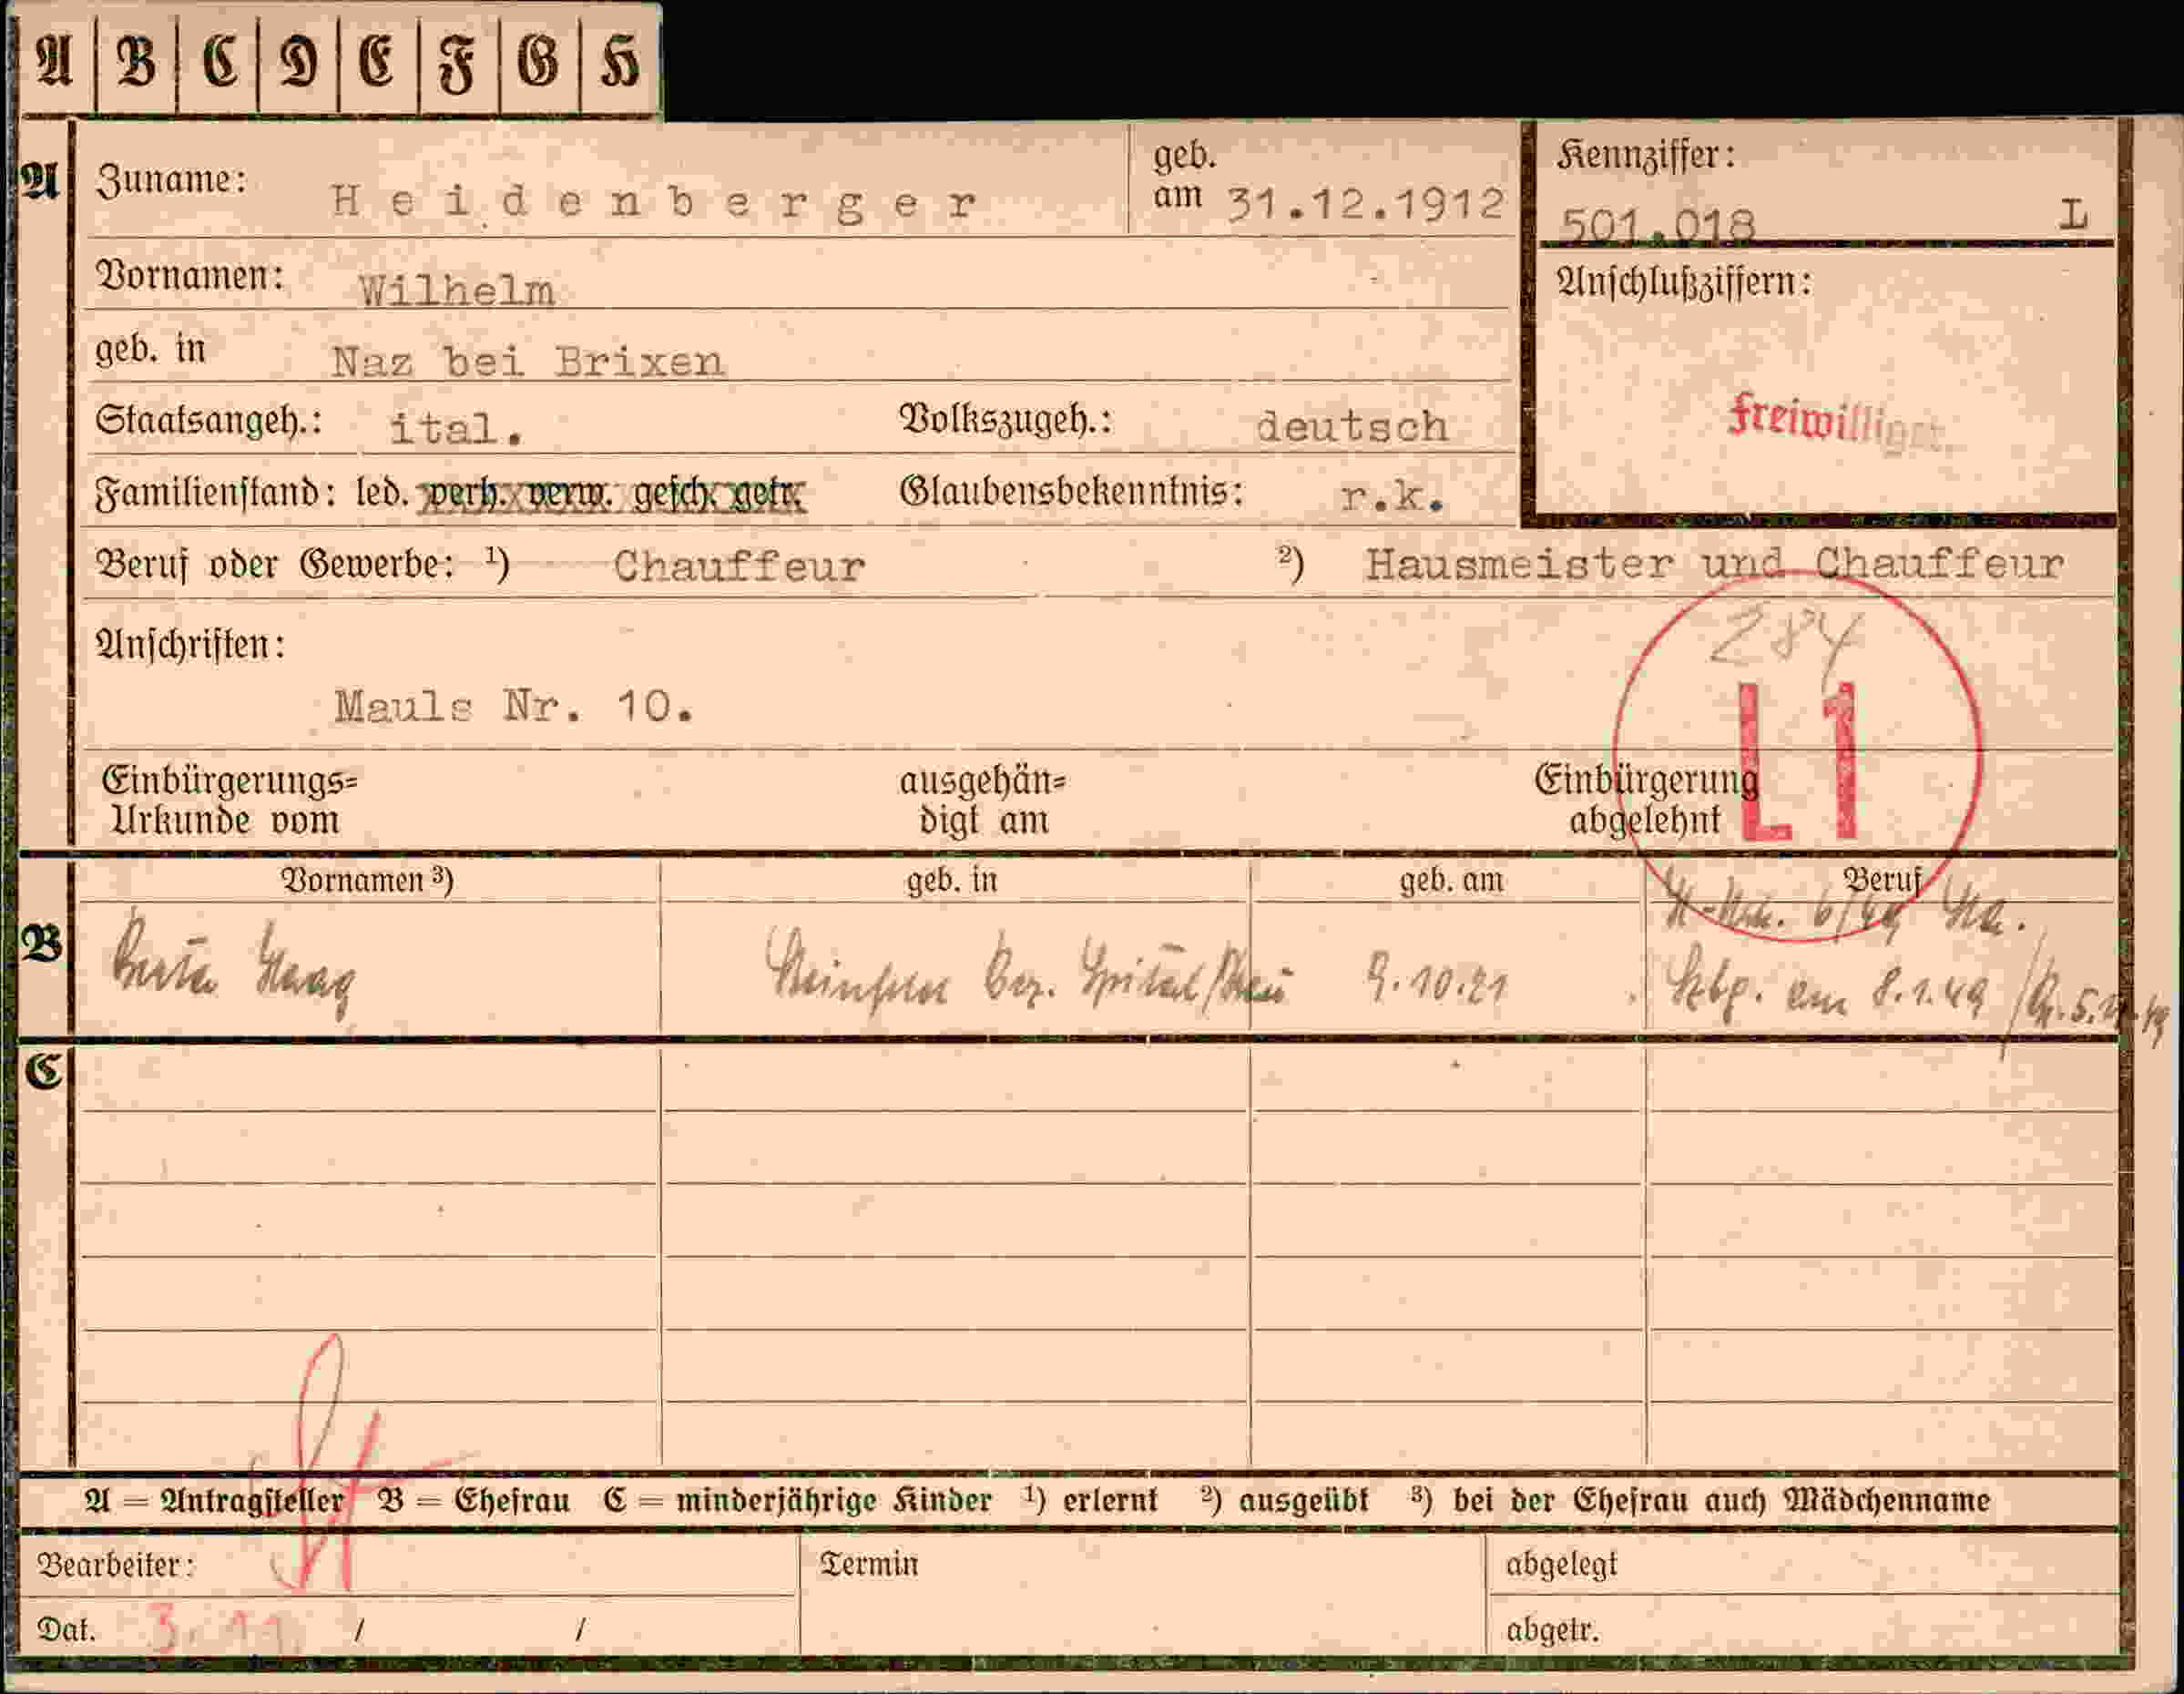 A B C D E F G H
A Zuname: Heidenberger geb. am 31.12.1912
Kennziffer: 501.018 L
Vornamen: Wilhelm
Anschlußziffern:
geb. in Naz bei Brixen
Staatsangeh.: ital. Volkszugeh.: deutsch
freiwillig
Familienstand: led. verh. verw. gesch. getr. Glaubensbekenntnis: r.k.
Beruf oder Gewerbe: ¹) Chauffeur ²) Hausmeister und Chauffeur
284
Anschriften:
Mauls Nr. 10.
L1
Einbürgerungs=
Urkunde vom
ausgehän=
digt am
Einbürgerung
abgelehnt
Vornamen ³) geb. in geb. am Beruf
6/49
B Berta Haag Bez. Spital 9.10.21 am 8.1.49
C
A = Antragsteller B = Ehefrau C = minderjährige Kinder ¹) erlernt ²) ausgeübt ³) bei der Ehefrau auch Mädchenname
Bearbeiter: Termin abgelegt
Dat. 3.11. / / abgetr.